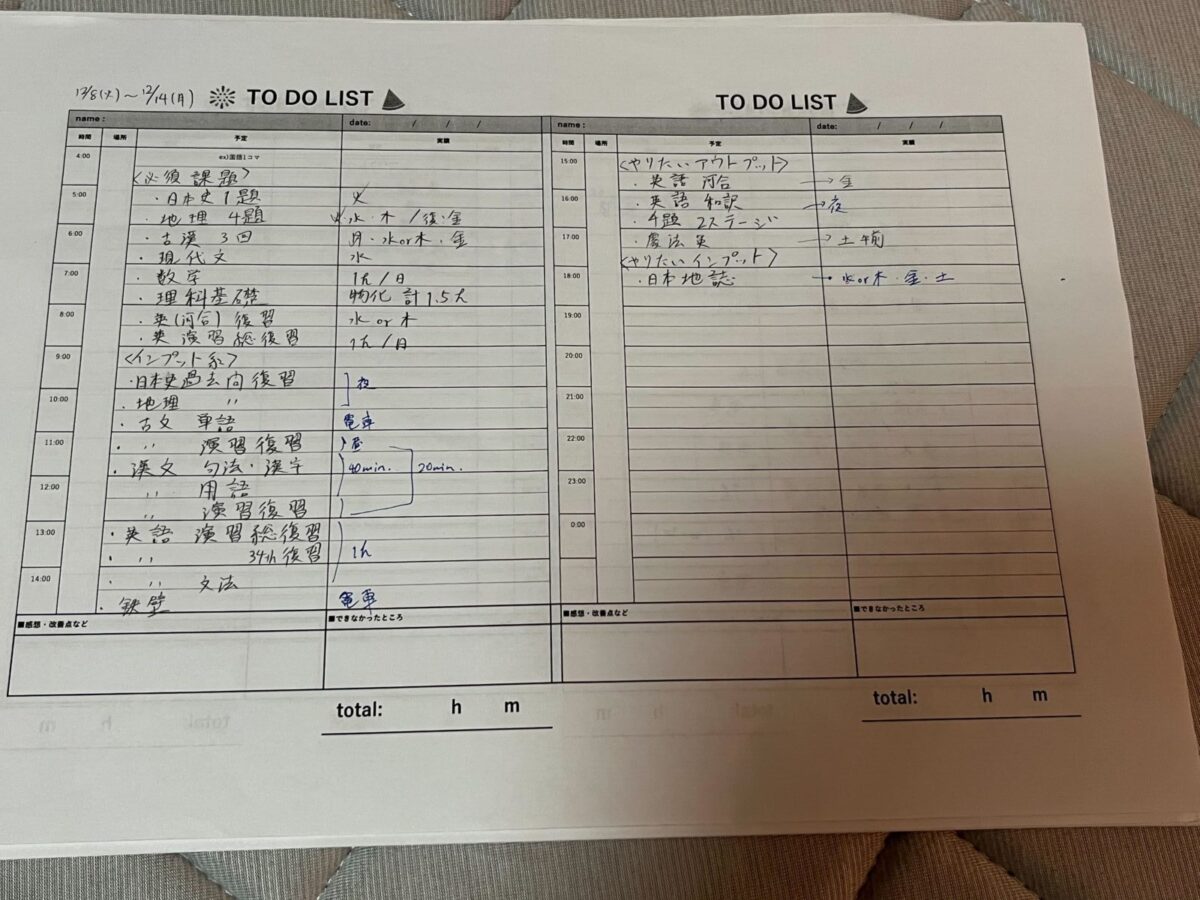 12/8(火)～12/14(月) TO DO LIST
name: date: / / /
時間 場所 予定 実績
4:00 ex)国語1コマ
<必須課題>
5:00 ・日本史1題 火
・地理 4題 水・木/後・金
6:00 ・古漢 3回 月・水or木・金
・現代文 水
7:00 ・数学 1h/日
・理科基礎 物化 計1.5h
8:00 ・英(河合)復習 水or木
・英 演習総復習 1h/日
9:00 <インプット系>
・日本史過去問復習 夜
10:00 ・地理 〃
・古文 単語 電車
11:00 ・〃 演習復習 昼
・漢文 句法・漢字 40min. 20min.
12:00 〃 用語
〃 演習復習
13:00 ・英語 演習総復習 1h
・〃 34th復習
14:00 ・〃 文法
・鉄壁 電車
■感想・改善点など ■できなかったところ
total: h m
TO DO LIST
name: date: / / /
時間 場所 予定 実績
15:00 <やりたいアウトプット>
・英語 河合 →金
16:00 ・英語 和訳 →夜
・4題 2ステージ
17:00 ・慶法英 →土 午前
<やりたいインプット>
18:00 ・日本地誌 →水or木・金・土
19:00
20:00
21:00
22:00
23:00
0:00
■感想・改善点など ■できなかったところ
total: h m